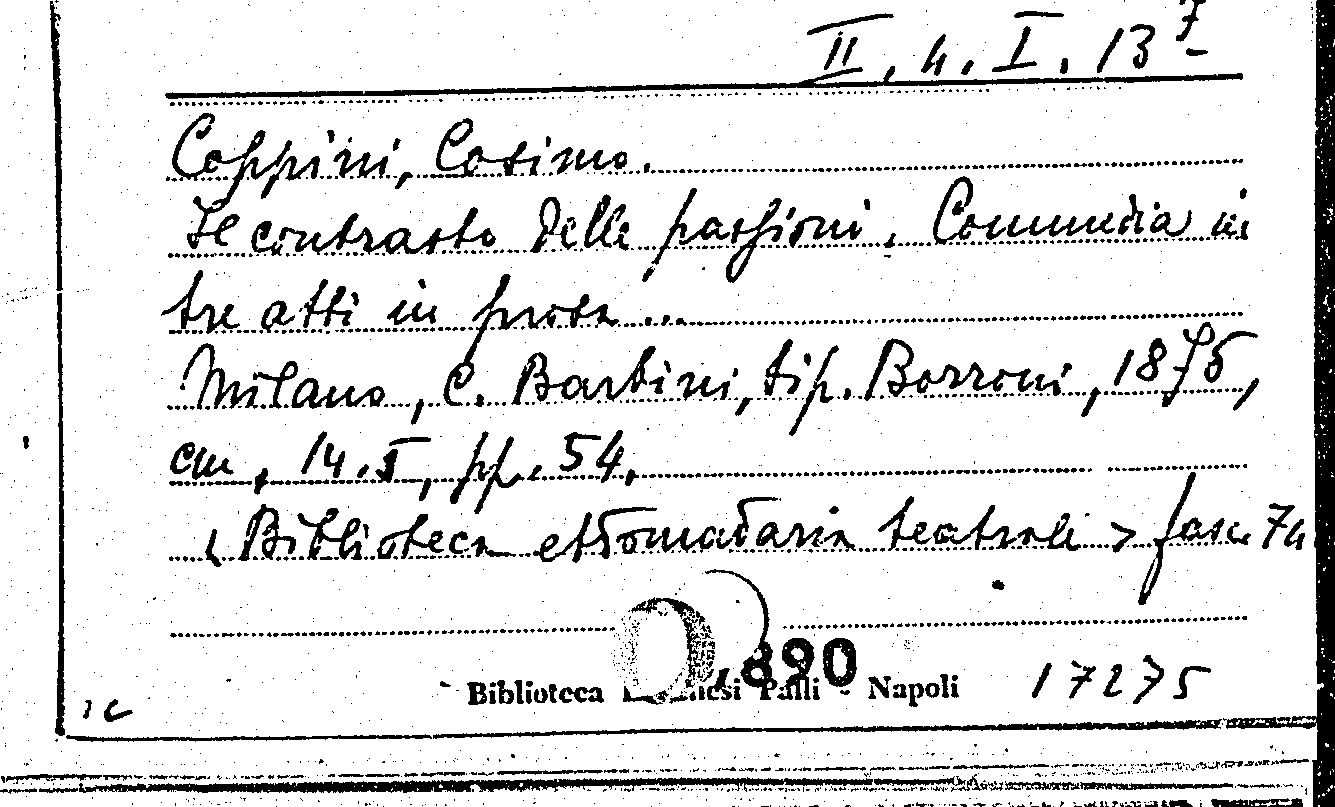 II. 4. I. 13 7
Coppini, Cosimo.
Il contrasto delle passioni. Commedia in
tre atti in prosa ...
Milano, C. Barbini, tip. Borroni, 1875,
cm. 14.5, pp. 54.
< Biblioteca ebdomadaria teatrale > fasc. 74
,890
Biblioteca Palli - Napoli 17275